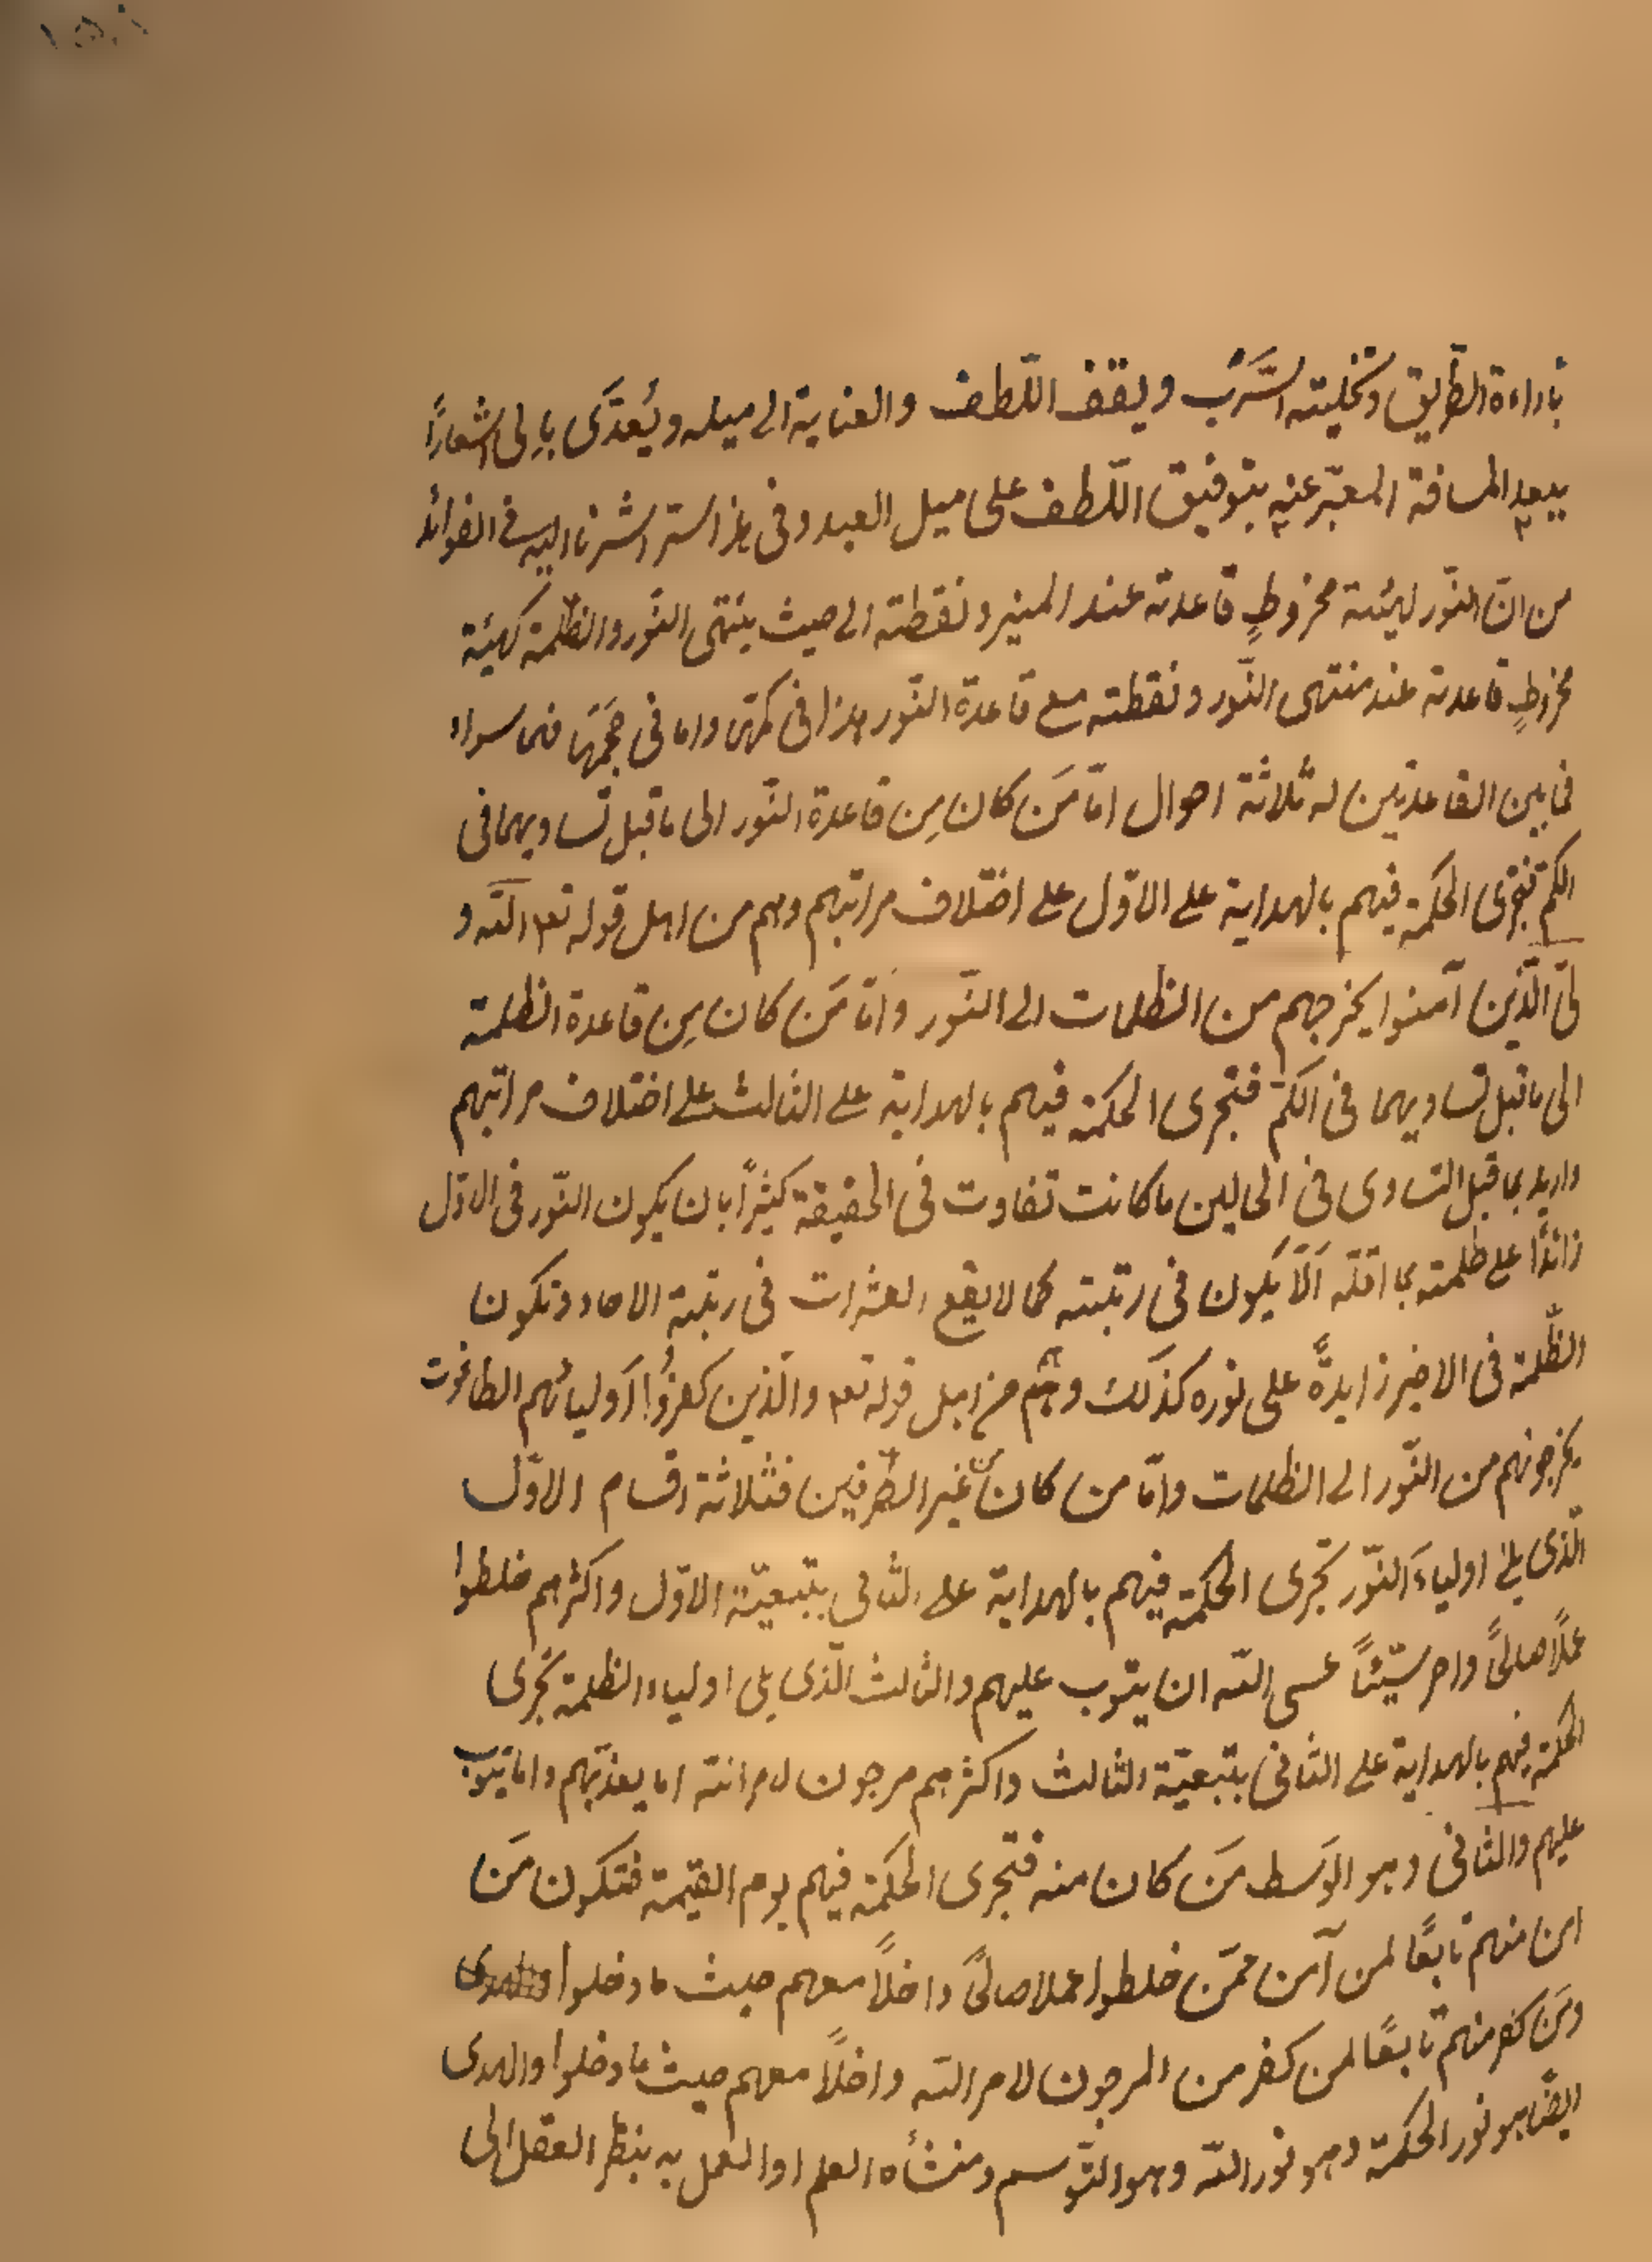 باراءة الطّريق وتخليته السَّرَب ويقف اللّطف والعناية الى ميله ويُعدَّى بالى اشعارًا
ببعد المسافة المعبّر عنه بتوفيق اللّطف على ميل العبد وفى هذا ستر اشرنا اليه فى الفوائد
من انّ النّور لهيئة مخروطٍ قاعدته عند المنير ونقطته الى حيث ينتهى النّور والظّلمة كهيئة
مخروطٍ قاعدته عند منتهى النّور ونقطته مع قاعدة النّور هذا فى كمّها واما فى حجمها فهما سواء
فما بين القاعدتين له ثلاثة احوال امّا مَن كان مِن قاعدة النّور الى ما قبل تساويهما فى
الكمّ فتجرى الحكمة فيهم بالهداية على الاوّل على اختلاف مراتبهم وهم من اهل قوله تعم اللّه و
لىّ الّذين آمنوا يخرجهم من الظلمات الى النّور وامّا مَن كان مِن قاعدة الظلمة
الى ما قبل تساويهما فى الكمّ فتجرى الحكمة فيهم بالهداية على الثالث على اختلاف مراتبهم
واريد بما قبل التساوى فى الحالين ما كانت تفاوت فى الحقيقة كثيرًا بان يكون النّور فى الاوّل
زائدًا على ظلمته بما اقلّه اَلّا يكون فى رتبته كما لا يقع العشرات فى رتبة الاحاد وتكون
الظّلمة فى الاخير زايدةً على نوره كذلك وهم من اهل قوله تعم والّذين كفرُوا اَوليائهم الطاغوت
يخرجونهم من النّور الى الظلمات وامّا من كان من غير الطّرفين فثلاثة اقسام الاوّل
الّذى يلى اولياءَ النّور تجرى الحكمة فيهم بالهداية على الثانى بتبعيّة الاوّل واكثرهم خلطوا
عملًا صالحًا واخر سيّئًا عسى اللّه ان يتوب عليهم والثالث الّذى يلى اولياء الظلمة تجرى
الحكمة فيهم بالهداية على الثانى بتبعيّة الثالث واكثرهم مرجون لامر اللّه اما يعذّبهم واما يتوب
عليهم والثانى وهو الوَسط مَن كان منه فتجرى الحكمة فيهم يوم القيمة فتكون مَن
امن منهم تابعًا لمن آمن ممّن خلطوا عملا صالحًا داخلًا معهم حيث ما دخلوا
ومَن كفر منهم تابعًا لمن كفر من المرجون لامر اللّه داخلًا معهم حيث ما دخلوا والهدى
ايضًا هو نور الحكمة وهو نور اللّه وهو التّوسم ومنشأه العلم او العمل به بنظر العقل الى